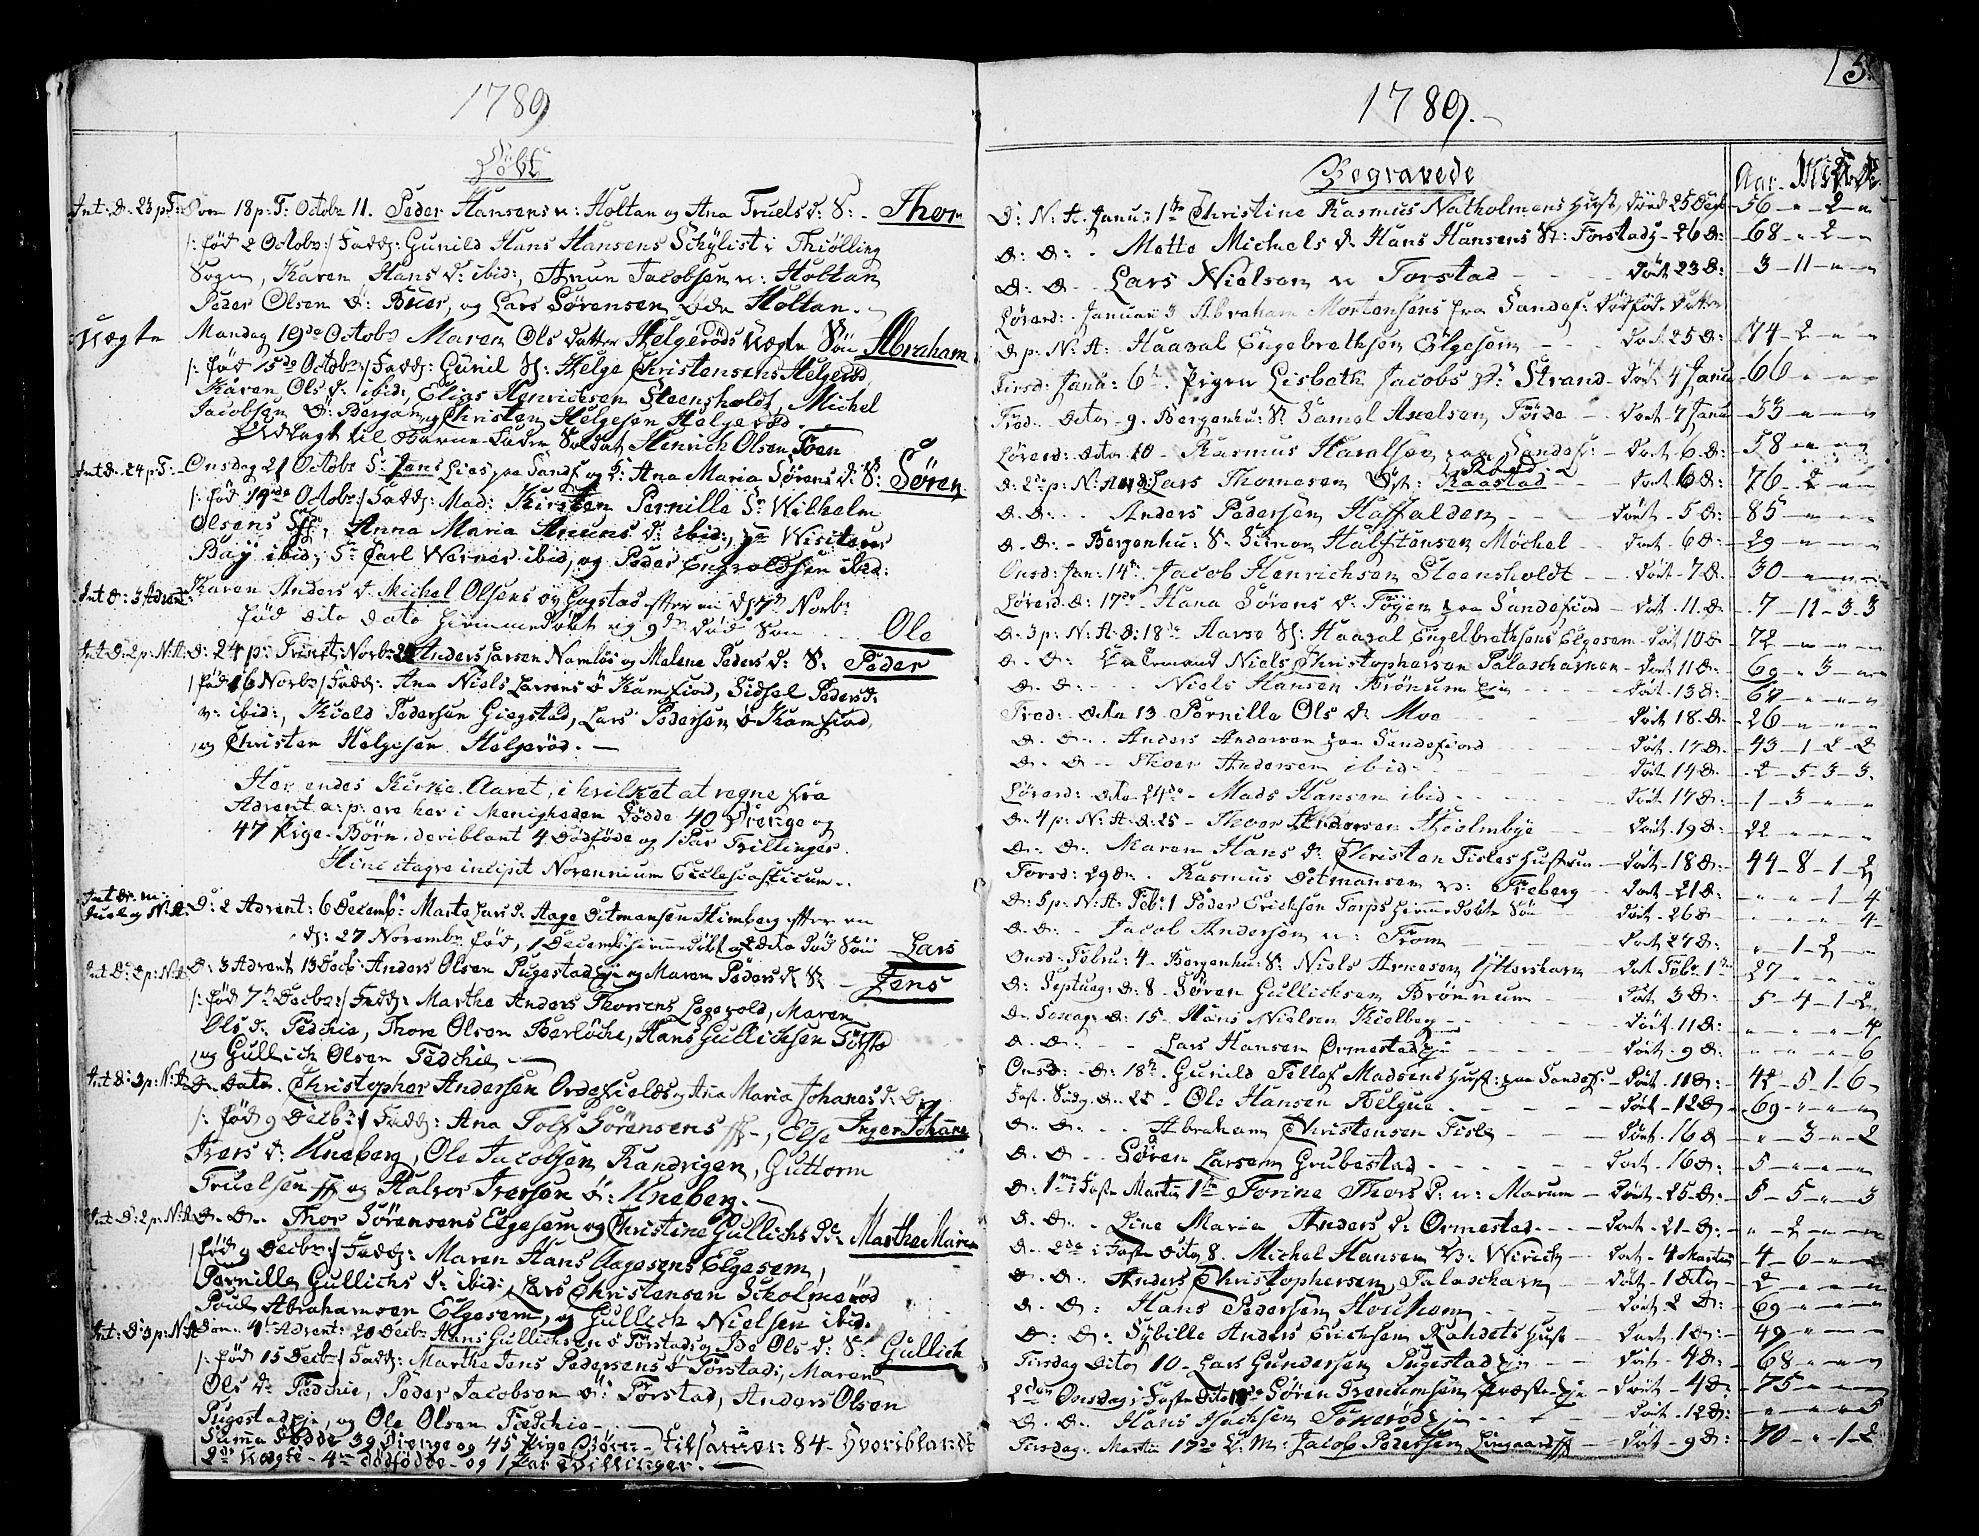 1789
Döbte
Int: D. 23 p: T: Dom 18 p: T: Octobr 11. Peder Hansens n: Holtan og Ana Truels d: S: - Thor
/: fød 2 Octobr :/ Fadd: Gunild Hans Hansens Schylist i Thiølling
Sogn, Karen Hans d: ibid:, Anun Jacobsen n: Holtan
Peder Olsen Ø: Buer, og Lars Sörensen Holtan.
Uægte Mandag 19de Octobr Maren Ols Datter Helgeröds Uægte Sön Abraham
/: fød 15de Octobr :/ Fadd: Gunil H: Helge Christensens Helgeröd
Karen Ols d: ibid:, Elias Henrichsen Steensholdt, Michel
Jacobsen Ø: Bergan, og Christen Helgesen Helgeröd.
Udlagt til Barne-Fader Soldat Henrich Olsen Toen
Int. D. 24 p: T: Onsdag 21 Octobr S: Jens Lies paa Sandf og Ana Maria Sörens d: S: Sören
/: fød 14de Octobr :/ Fadd: Mad: Kirsten Pernille Sr Wilhelm
Olsens, Anna Maria Anuns d: ibid:, Wisiteur
Bay ibid, Sr Carl Wernes ibid, og Peder Engvoldsen ibid:
Int D: 3 Advent: Karen Anders d. Michel Olsens Gogstad efter en d: 7de Novbr
fød dito dato hiemmedöbt og 9de død Sön - Ole
Int D: 2 p: N: A: D: 24 p: Trinit: Novbr 22 Anders Larsen Namlös og Malene Peders d: S: Peder
/ fød 16 Novbr / Fadd: Ana Niels Larsens Ø Kamfiord, Sidsel Peders d:
n: ibid:, Kield Pedersen Giegstad, Lars Pedersen Ø Kamfiord,
og Christen Helgesen Helgeröd. -
Her endes Kirke-Aaret, i hvilket at regne fra
Advent a: p: ere her i Menigheden Födde 40 Drenge og
47 Pige-Börn, deriblant 4 Dödföde og 1 Par Trillinger.
Hinc itaqve incipit Novennium Ecclesiasticum.
D: 2 Advent: 6 Decemb: Marte Lars d: Aage Ditmansen Himberg efter en
d: 27 Novembr fød, 1 Decemb hiemmedöbt og 2 dito Död Sön - Lars
Int: D: 2 p: N: A: D: 3 Advent 13 Decb: Anders Olsen Pugestad og Maren Peders d: S: Jens
/: fød 7de Decbr :/ Fadd: Marthe Anders Thorsens Lagevold, Maren
Ols d: Fedchie, Thore Olsen Berlöche, Hans Gullichsen Törst
og Gullich Olsen Fedchie -
Int D: 3 p: N: A: D. Dato. Christopher Andersen Ordefields og Ana Maria Johanes d: D:
/: fød 9 Decbr :/ Fadd: Ana Tolf Sörensens, Else Inger Johane
Ivers d: Uneberg, Ole Jacobsen Randrigen, Guttorm
Truelsen og Halvor Iversen Ø: Uneberg. -
Int D: 2 p: N: A: D. D. Thor Sörensens Elgesem og Christine Gullichs D: Marthe Maren
/ fød 9 Decbr :/ Fadd: Maren Hans Aagesens Elgesem,
Pernille Gullichs d: ibid: Lars Christensen Skolmeröd
Poul Abrahamsen Elgesem, og Gullich Nielsen ibid.
Int: D: 3 p: N: A Dom: 4 Advent: 20 Decbr Hans Gullichsen Ø Törstad og Bo Ols d: S: Gullich
/: fød 15 Decbr / Fadd: Marthe Jens Pedersens Ø Törstad; Maren
Ols d: Fedchie, Peder Jacobsen Ø: Törstad, Anders Olsen
Pugestad, og Ole Olsen Fedchie -
Suma Fødde 39 Drenge og 45 Pige Börn - tilsamen: 84 - Hvoriblandt
2de Uægte - 4re dödfödde - og 1 Par Tvillinger. -
1789. -
5.
Begravede
Aar.
D: N: A. Janu: 1ste Christine Rasmus Natholmens Hust, död 25 Decb 56 - - 2 -
D: D: - Mette Michaels d. Hans Hansens St: Torstad - 26 D: 68 - 2 -
D: D. Lars Nielsen n Torstad - - Död 23 D: 3 - 11 - -
Löverd: Januari 3 Abraham Mortensens fra Sandef: Dödföd. Datter
D p: N: A: Haaval Engebrethsen Elgesem - - Död. 25 D: 74 - 2 - -
Tirsd: Janu: 6te. Pigen Lisbeth Jacobs d: Strand - Död 4 Janu 66 - - -
Fred: Dito - 9. Bergenhu: S: Samel Axelsen Förde - Död 4 Janu 33 - - -
Löverd: Dito 10 - Rasmus Haralsen paa Sandef: - Död 6 D: 58 - - -
D: 2de p: N: A: Lars Thomesen Raastad - Död 6 D: 76 - 2 - -
D: D: - Anders Pedersen Haffalden - Död. 5 D: 85 - - -
D. D: - Bergenhu: S: Simon Halfstensen Möchel - Död. 6 D: 29 - - -
Onsd: Jan: 14de Jacob Henrichsen Steensholdt - - Död. 7 D: 30 - - -
Löverd: D: 17de - Hana Sörens d: Töyen paa Sandefiord - Död. 11. D: 7 - 11 - 3 3
D. 3 p: N: A: D: 18de Aarse H: Haaval Engelbrethsens Elgesem - Död 10 D: 72 - - -
D. D: Niels Christophersen Palaschavnen - Död 11 D: 69 - 3 -
D. D: - - Niels Hansen Brönum - Död. 13 D: 64 - - -
Fred: Dito 13 Pernille Ols d: Moe - - - Död 18 D. 26 - - -
D. D. Anders Andersen paa Sandefiord - - - Död. 17 D. 43 - 1 - 2 - 2
D. D. - Thor Andersen ibid: - - - Död 14 D. 2 - 5 - 3 - 3
Löverd: Dito 24de - Mads Hansen ibid - - - Död 17 D: - 1 - 3 - -
D. 4 p: N: A: D: 25 - Thor Andersen Hiolmbye - - Död. 19 D: 22 - - -
D. D: Maren Hans d: Christen Tisles Hustrue - Död. 18 D: 44 - 8 - 1 - 2
Torsd: 29 D: - Rasmus Ditmansen V: Freberg - Död - 21 D: - - 1 - 4
D: 5 p: N: A: Feb: 1 Peder Erichsen Torps hiemmedöbte Sön Död. 26 D: - - - 4
D. D: - Jacob Andersen n: From Död 27 D: - 1 - 2 -
Onsd: Febru: 4 - Bergenhu: S: Niels Arnesen Ytterskarn Död Feb: 1ste 27 - - -
D: Septuag: D: 8 - Sören Gullichsen Brönnum Död 3 D: 5 - 4 - 1 - 2
D. Sexag: D: 15 - Hans Nielsen Kielberg - Död. 11 D: - - - 4
D. D: - Lars Hansen Ormestad - - Död. 9 D: - - - 6
Onsd: - D: 18de Gunild Tellef Madsens Hust: paa Sandef: - Död. 11 D: 42 - 5 - 1 - 6
Fast: Sönd: D: 22 - Ole Hansen Helgue - - - Död - 12 D 69 - - -
D: D: - Abraham Christensen Tisle - - Död. 16 D - 3 - 2
D: D. Sören Larsen Grubestad - - - Död. 16 D: 5 - - -
D: 1me i Faste Martii 1ste Torine Thors d: n: Marum - Död. 25 D: 5 - 5 - - 3
D. D: Line Maria Anders d: Ormestad - - Död - 21 - D: - 2 - -
D: 2de i Faste Dito 8. Michel Hansen V: Wirich - Död. 4 Martii 4 - 6 - -
D: D: Anders Christophersen, Palascharn - Död - 1 Dito - 2 - -
D. D: Hans Pedersen Houkom - Död 2 D: 69 - - -
D: D: Sybille Anders Erichsen Rahdets Hust - Död. 1 D: 49 - - -
Tirsdag Dito 10 - Lars Gundersen Pugestad - Död. 4 D: 68 - - -
2den Onsdag i Faste Dito Sören Trendsen Præste - Död. 4 D: 75 - - -
D. D: Hans Isachsen Tokeröd - - Död. 12 D: - - - 5
Tirsdag: Martii 17de L: M: Jacob Pedersen Lingaard - Död. 9 D: 70 - - 1 - 2